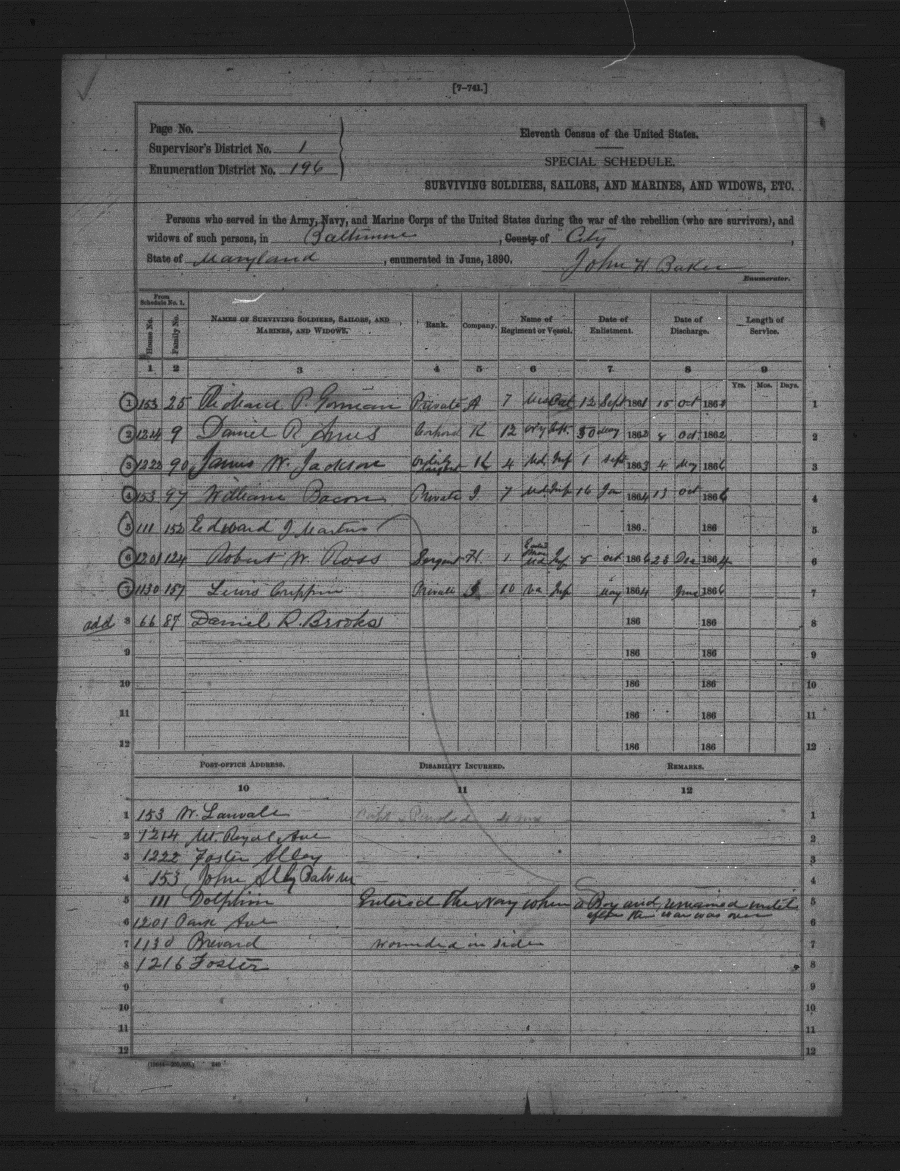 [7-741.]
Page No.
Supervisor's District No. 1
Enumeration District No. 196
Eleventh Census of the United States.
SPECIAL SCHEDULE.
SURVIVING SOLDIERS, SAILORS, AND MARINES, AND WIDOWS, ETC.
Persons who served in the Army, Navy, and Marine Corps of the United States during the war of the rebellion (who are survivors), and
widows of such persons, in Baltimore, County of City,
State of Maryland, enumerated in June, 1890. John H Baker
Enumerator.
From Schedule No. 1.
House No. Family No. NAMES OF SURVIVING SOLDIERS, SAILORS, AND MARINES, AND WIDOWS. Rank. Company. Name of Regiment or Vessel. Date of Enlistment. Date of Discharge. Length of Service.
1 2 3 4 5 6 7 8 9
Yrs. Mos. Days.
1 153 25 Richard P. Gorman Private A 7 12 Sept 1861 15 Oct 1864 1
2 1214 9 Daniel R Ames K 12 30 May 1862 8 Oct 1862 2
3 1222 90 James W. Jackson K 4 Md. Inf 1 Sept 1863 4 May 1866 3
4 153 97 William Bacon Private I. 7 Md Inf 16 Jan 1864 13 Oct 1866 4
5 111 152 Edward J Martin 186 186 5
6 1201 124 Robert W. Ross Sergant H. 1 Md. Inf 8 Oct 186 23 Dec 1864 6
7 1130 187 Lewis Crippin Private 10 Va Inf May 1864 June 1866 7
add 8 66 87 Daniel R. Brooks 186 186 8
9 186 186 9
10 186 186 10
11 186 186 11
12 186 186 12
POST-OFFICE ADDRESS. DISABILITY INCURRED. REMARKS.
10 11 12
1 153 W. Lanvale 1
2 1214 Mt. Royal Ave 2
3 1222 Foster Alley 3
4 153 John Ally Balt 4
5 111 Dolphin Entered the Navy when a Boy and remained until 5
after the war was over
6 1201 Park Ave 6
7 1130 Brevard wounded in side 7
8 1216 Foster 8
9 9
10 10
11 11
12 12